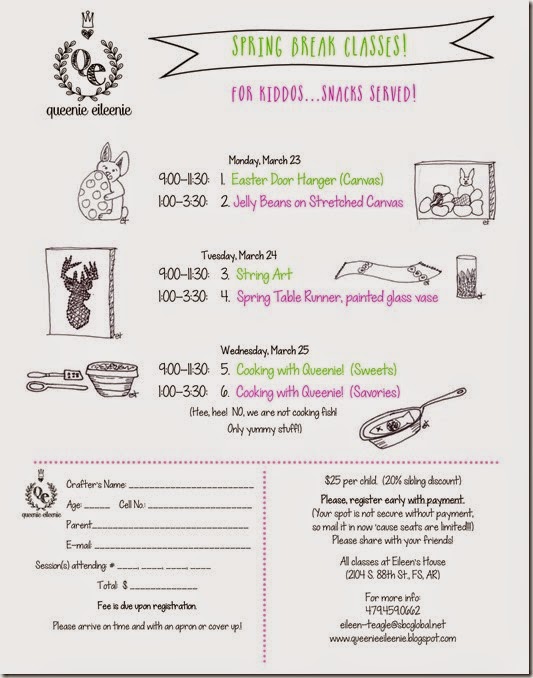 QE
queenie eileenie
SPRING BREAK CLASSES!
FOR KIDDOS...SNACKS SERVED!
Monday, March 23
9:00-11:30: 1. Easter Door Hanger (Canvas)
1:00-3:30: 2. Jelly Beans on Stretched Canvas
et
et
Tuesday, March 24
9:00-11:30: 3. String Art
1:00-3:30: 4. Spring Table Runner, painted glass vase
et
et
Wednesday, March 25
9:00-11:30: 5. Cooking with Queenie! (Sweets)
1:00-3:30: 6. Cooking with Queenie! (Savories)
(Hee, hee! NO, we are not cooking fish!
Only yummy stuff!)
et
et
QE
queenie eileenie
Crafter's Name: ____________________
Age: _____ Cell No.: ____________________
Parent____________________
E-mail: ____________________
Session(s) attending: # ____, ____, ____, ____, ____, ____
Total: $ ____________
Fee is due upon registration.
Please arrive on time and with an apron or cover up!
$25 per child. (20% sibling discount)
Please, register early with payment.
(Your spot is not secure without payment,
so mail it in now 'cause seats are limited!!!)
Please share with your friends!
All classes at Eileen's House
(2104 S. 88th St., FS, AR)
For more info:
479.459.0662
eileen-teagle@sbcglobal.net
www.queenieeileenie.blogspot.com